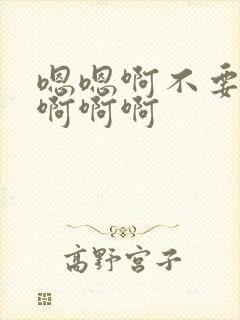 嗯嗯啊不要
啊啊啊
高野宫子